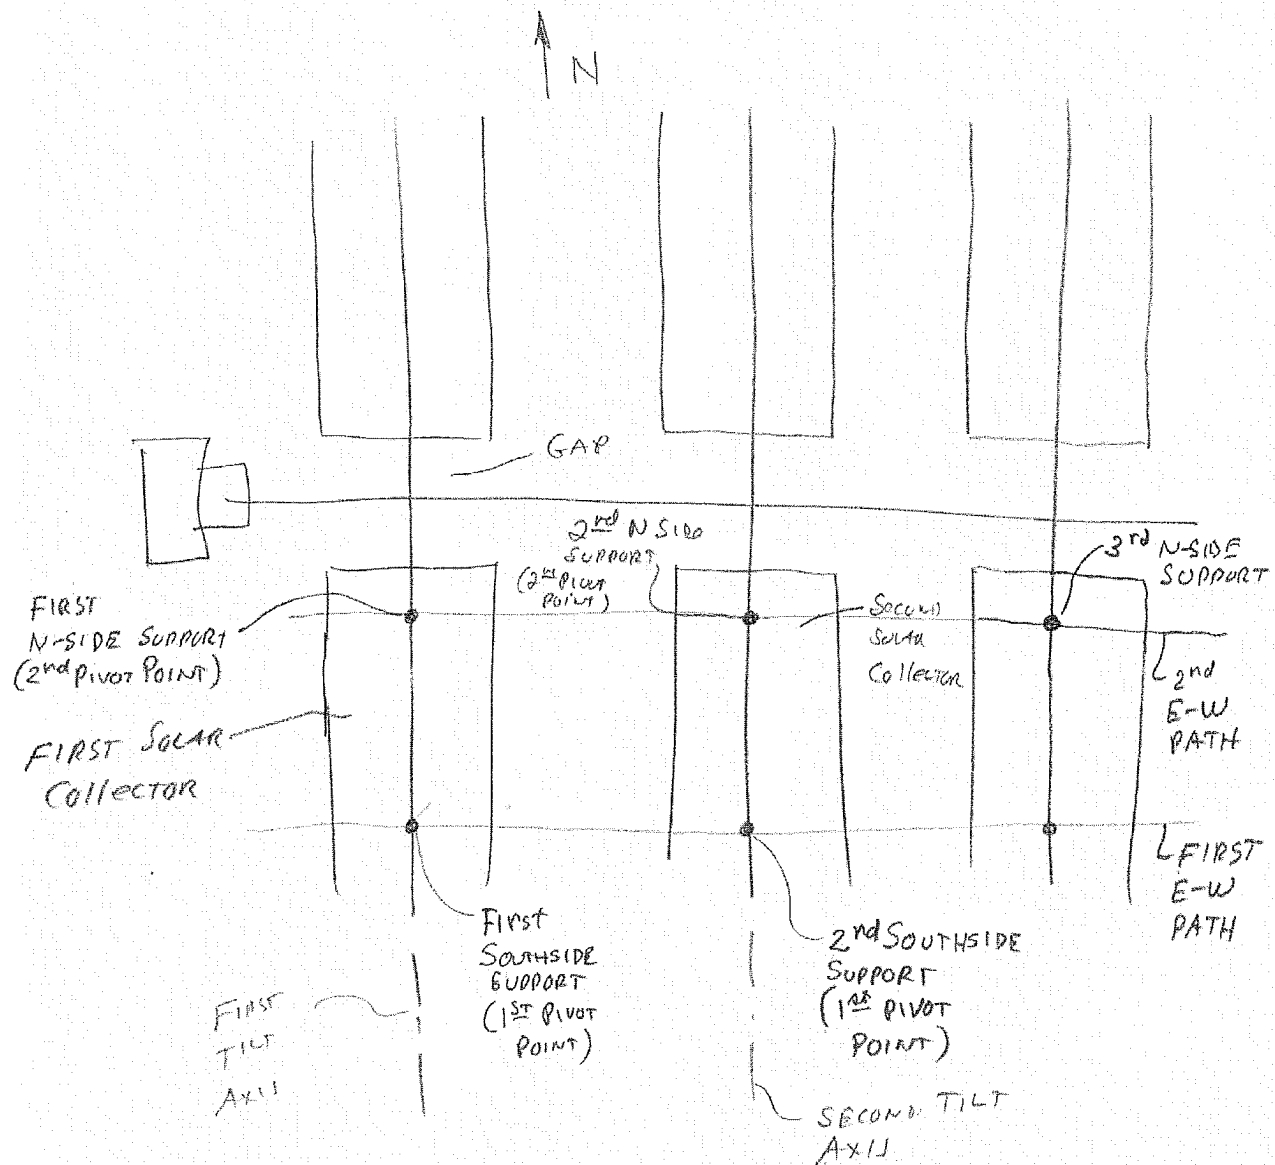 N
GAP
2nd N SIDE
SUPPORT
(2nd PIVOT
POINT)
3rd N-SIDE
SUPPORT
FIRST
N-SIDE SUPPORT
(2nd PIVOT POINT)
SECOND
SOLAR
COllECTOR
2nd
E-W
PATH
FIRST SOLAR
COllECTOR
FIRST
E-W
PATH
FIrst
SOUTHSIDE
SUPPORT
(1ST PIVOT
POINT)
2nd SOUTHSIDE
SUPPORT
(1st PIVOT
POINT)
FIRST
TILT
AXIS
SECOND TILT
AXIS